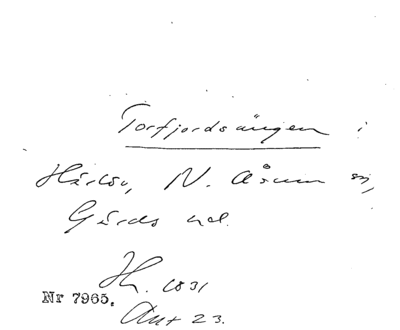 Torfjordsängen i
Härlöv, N. Åsum sn,
Gärds hd.
Hh. 1831
Nr 7965.
Akt 23.